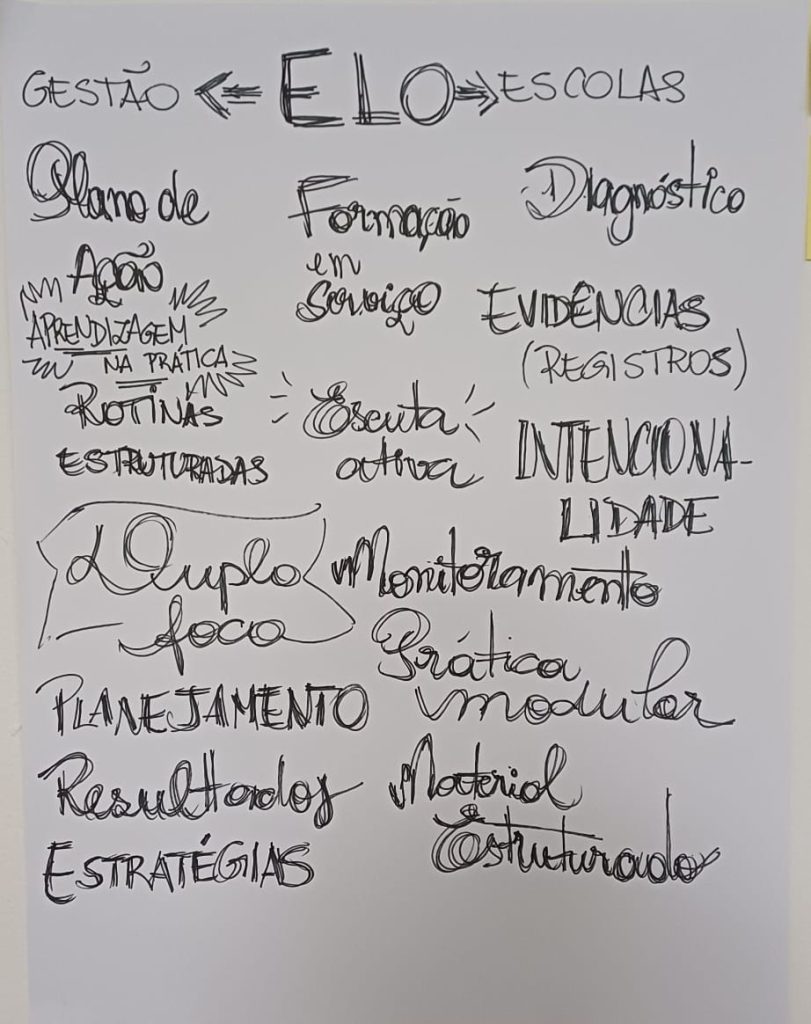 GESTÃO <= ELO => ESCOLAS
Plano de
Ação
APRENDIZAGEM
NA PRÁTICA
ROTINAS
ESTRUTURADAS
Formação
em
Serviço
Escuta
ativa
Diagnóstico
EVIDÊNCIAS
(REGISTROS)
INTENCIONA-
LIDADE
Duplo
foco
Monitoramento
Prática
modular
PLANEJAMENTO
Resultados
Material
Estruturado
ESTRATÉGIAS